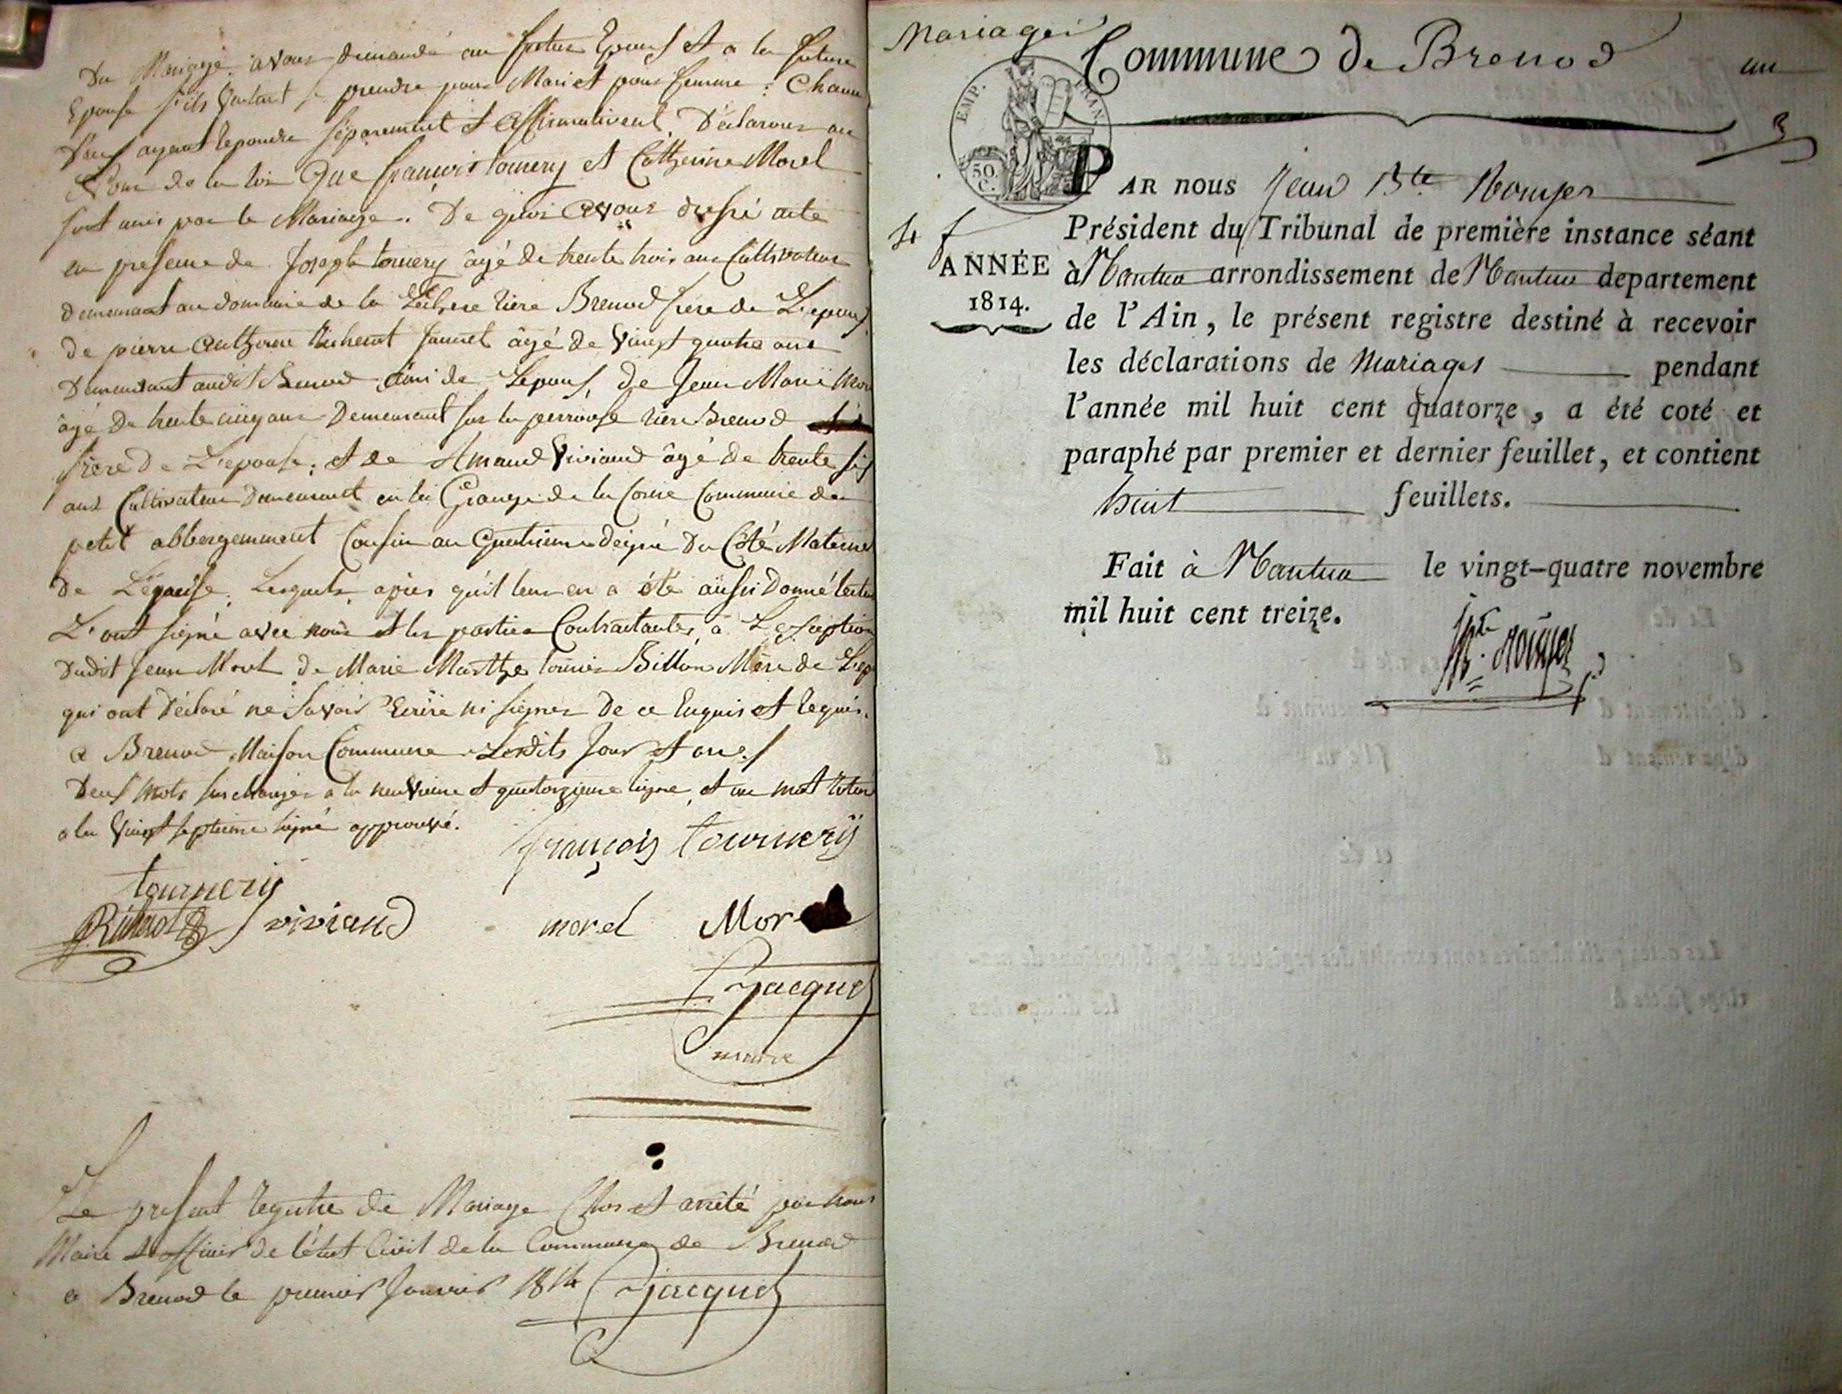 Du Mariage, avons demandé au futur Epoux et a la future
Epouse s'ils veulent se prendre pour Mari et pour femme : Chacun
d'eux ayant repondu séparement et affirmativent, Déclarons au
Nom de la loi Que françois tournery et Catherine Morel
sont unis par le Mariage. De quoi avons dressé acte
en presence de Joseph tournery âgé de trente trois ans Cultivateur
demeurant au domaine de la Léchere riere Brenod frere de L'epoux,
de pierre anthoine âgé de vingt quatre ans
Demeurant audit Brenod ami de Lepoux, de Jean Marie Mor
âgé de trente cinq ans Demeurant sur la perrouse riere Brenod
frere de L'epouse, et de Amand Viviand âgé de trente six
ans Cultivateur Demeurant en la Grange de la Commune de
petit abbergemment Cousin au quatrieme dégré Du Côté Maternel
de L'épouse, Lesquels, après qu'il leur en a été aussi Donné lectu
L'ont signé avec nous et les parties Contractantes, à L'exception
dudit Jean Morel de Marie Marthe Billon Mère de L'ep
qui ont Déclaré ne Savoir Ecrire ni signer De ce Enquis et Requis.
a Brenod Maison Commune Lesdits Jour et an
Deux Mots surchargés a la neuvieme et quatorzieme ligne, et un mot
a la vingt septieme ligne approuvé.
françois tournerÿ
tournery
viviand
morel
Mor
Jacquet
maire
Le present registre de Mariage Clos et arrêté par nous
Maire et officier de l'état Civil de la Commune de Brenod
a Brenod le premier Janvier 1814 Jacquet
Mariages
Commune de Brenod
un
EMP. FRAN
50 C.
PAR nous Jean Bte Rouyer
4 f
Président du Tribunal de première instance séant
ANNÉE
à Nantua arrondissement de Nantua departement
1814.
de l'Ain, le présent registre destiné à recevoir
les déclarations de Mariages pendant
l'année mil huit cent quatorze, a été coté et
paraphé par premier et dernier feuillet, et contient
huit feuillets.
Fait à Nantua le vingt-quatre novembre
mil huit cent treize.
Bte Rouyer